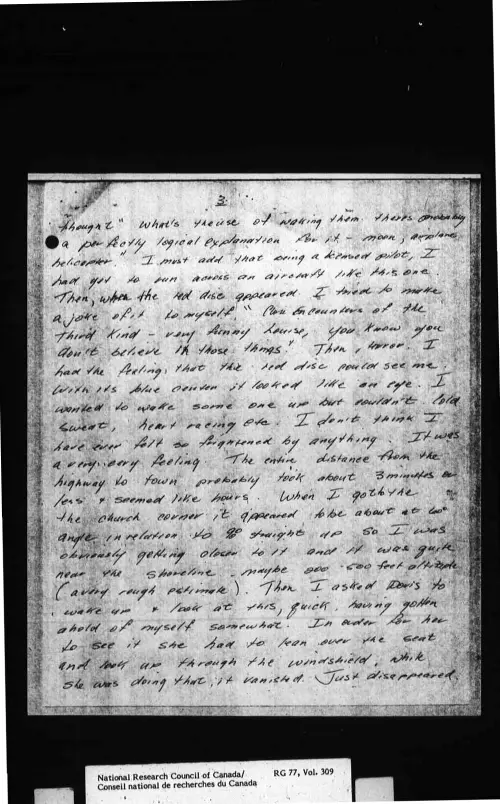 3.
thought " What's the use of waking them. theres probably
a perfectly logical explanation for it - moon, airplane,
helicopter " I must add that being a licensed pilot, I
had yet to run across an aircraft like this one.
Then, when the red disc appeared I tried to make
a joke of it to myself " Encounters of the
Third Kind - very funny Louise, you know you
don't believe in those things." Then, terror. I
had the feeling that the red disc could see me.
With its blue center it looked like an eye. I
wanted to wake some one up but couldn't. Cold
sweat, heart racing etc. I don't think I
have ever felt so frightened by anything. It was
a very eery feeling. The entire distance from the
highway to town probably took about 3 minutes or
less & seemed like hours. When I got to the
the church corner it appeared to be about at
angle in relation to straight up So I was
obviously getting closer to it and it was quite
near the shoreline - maybe 500 feet altitude
(a very rough estimate). Then I asked Doris to
wake up & look at this, quick, having gotten
ahold of myself somewhat. In order for her
to see it she had to lean over the seat
and look up through the windshield, while
she was doing that, it vanished. Just disappeared
National Research Council of Canada/ RG 77, Vol. 309
Conseil national de recherches du Canada